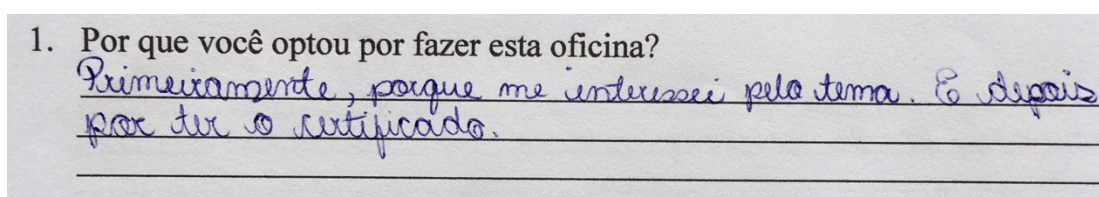 1. Por que você optou por fazer esta oficina?
Primeiramente, porque me interessei pelo tema. E depois
por ter o certificado.